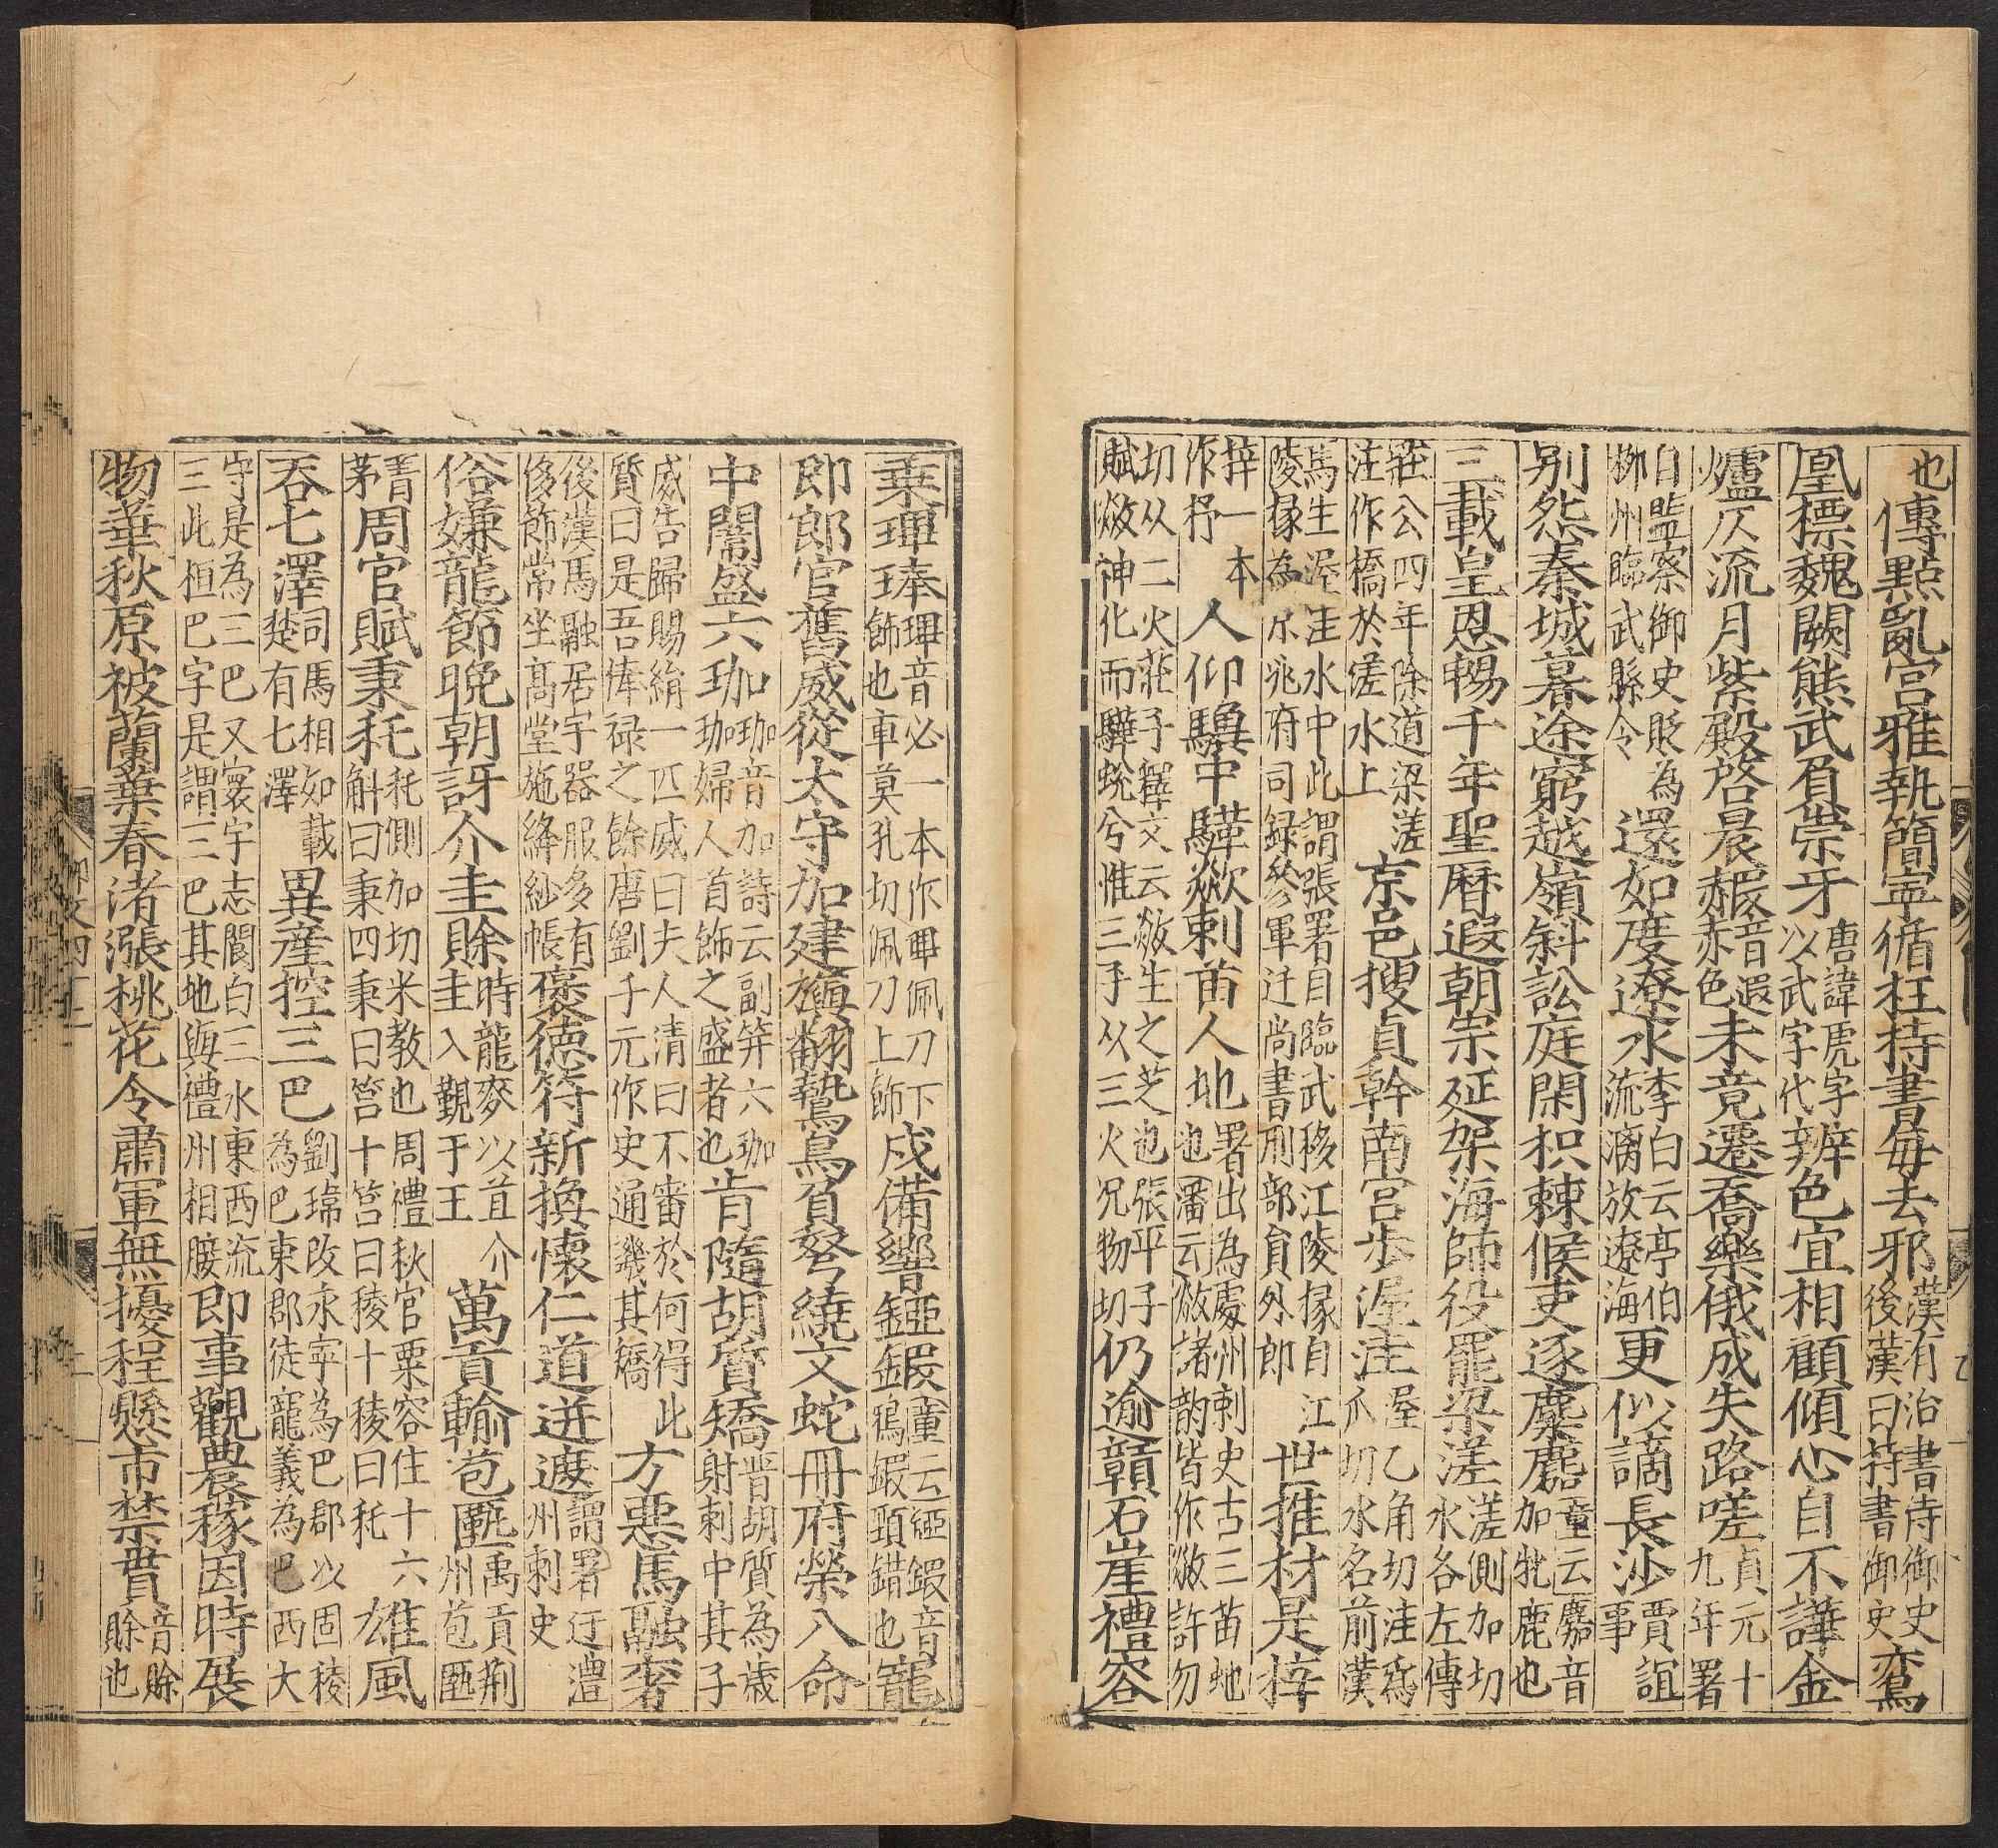 也傳點亂宮雅執簡寧循枉持書毎去邪漢有治書侍御史後漢曰持書御史鴛
凰摽魏闕熊武負崇牙唐諱虎字以武字代辨色宜相顧傾心自不譁金
爐仄流月紫殿啓晨赮音遐赤色未竟遷喬樂俄成失路嗟貞元十九年署
自監察御史貶為郴州臨武縣令還如度遼水李白云亭伯流漓放遼海更似謫長沙賈誼事
别怨秦城暮途窮越嶺斜訟庭閑枳棘候吏逐麋麚童云麚音加牝鹿也
三載皇恩暢千年聖曆遐朝宗延架海師役罷梁溠溠側加切水各左傳
莊公四年除道梁溠注作橋於溠水上京邑搜貞幹南宮步渥洼渥乙角切洼烏爪切水名前漢
馬生渥洼水中此謂張署自臨武移江陵掾自江陵掾為京兆府司録參軍迁尚書刑部員外郎世推材是梓
梓一本作杼人仰驥中驊歘剌苗人地署出為處州刺史古三苗地也潘云歘諸韵皆作歘許勿
切从二火莊子釋文云歘生之芝也張平子賦歘神化而驊蛻兮惟三手从三火况物切仍逾贛石崖禮容
乗琕琫琕音必一本作鞞佩刀下飾也車莫孔切佩刀上飾戍備響錏鍜童云錏鍜音鴉鍜頸錯也寵
即郎官舊威從太守加建旟翻鷙鳥負弩繞文蛇冊府榮八命
中闈盛六珈珈音加詩云副筓六珈珈婦人首飾之盛者也肯隨胡質矯晋胡質為歳射刺中其子
威告歸賜絹一匹威曰夫人清曰不審於何得此質曰是吾俸禄之餘唐劉子元作史通譏其矯方惡馬融奢
後漢馬融居宇器服多有侈飾常坐髙堂施絳紗帳褒德符新換懷仁道迸遮謂署迂澧州刺史
俗嫌龍節晚朝訝介圭賖時龍麥以苴介圭入覲于王萬貢輸苞匭禹貢荆州苞匭
菁茅周官賦秉秅秅側加切米教也周禮秋官粟容住十六斛曰秉四秉曰筥十筥曰稜十稜曰秅雄風
吞七澤司馬相如載楚有七澤異産控三巴劉璋改永寧為巴郡以固稜為巴東郡徒寵義為巴西大
守是為三巴又寰宇志閬白三水東西流三此桓巴字是謂三巴其地與禮州相接即事觀農稼因時展
物華秋原被蘭葉春渚漲桃花令肅軍無擾程懸市禁貰音賖賖也